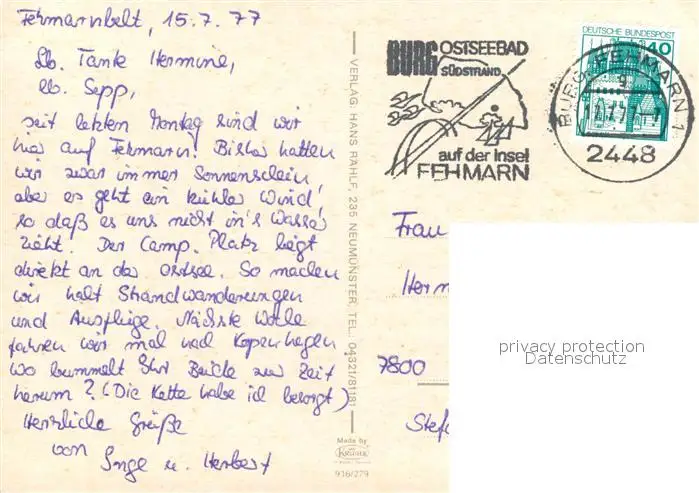 Fehmarnbelt, 15.7.77
Lb. Tante Hermine,
lb. Sepp,
seit letzten Montag sind wir
hier auf Fehmarn! Bisher hatten
wir zwar immer Sonnenschein
aber es geht ein kühler Wind,
so daß es uns nicht in's Wasser
zieht. Der Camp. Platz liegt
direkt an der Ostsee. So machen
wir halt Strandwanderungen
und Ausflüge. Nächste Woche
fahren wir mal nach Kopenhagen
Wo bummelt Ihr Beide zur Zeit
herum? (Die Kette habe ich besorgt)
Herzliche Grüße
von Inge u. Herbert
VERLAG: HANS RAHLF, 235 NEUMÜNSTER, TEL. 04321/81181
Made by
KRÜGER
916/279
BURG OSTSEEBAD
SÜDSTRAND
auf der Insel
FEHMARN
DEUTSCHE BUNDESPOST
40
BURG, FEHMARN 1
2448
Frau
Herm
7800
Stef
privacy protection
Datenschutz